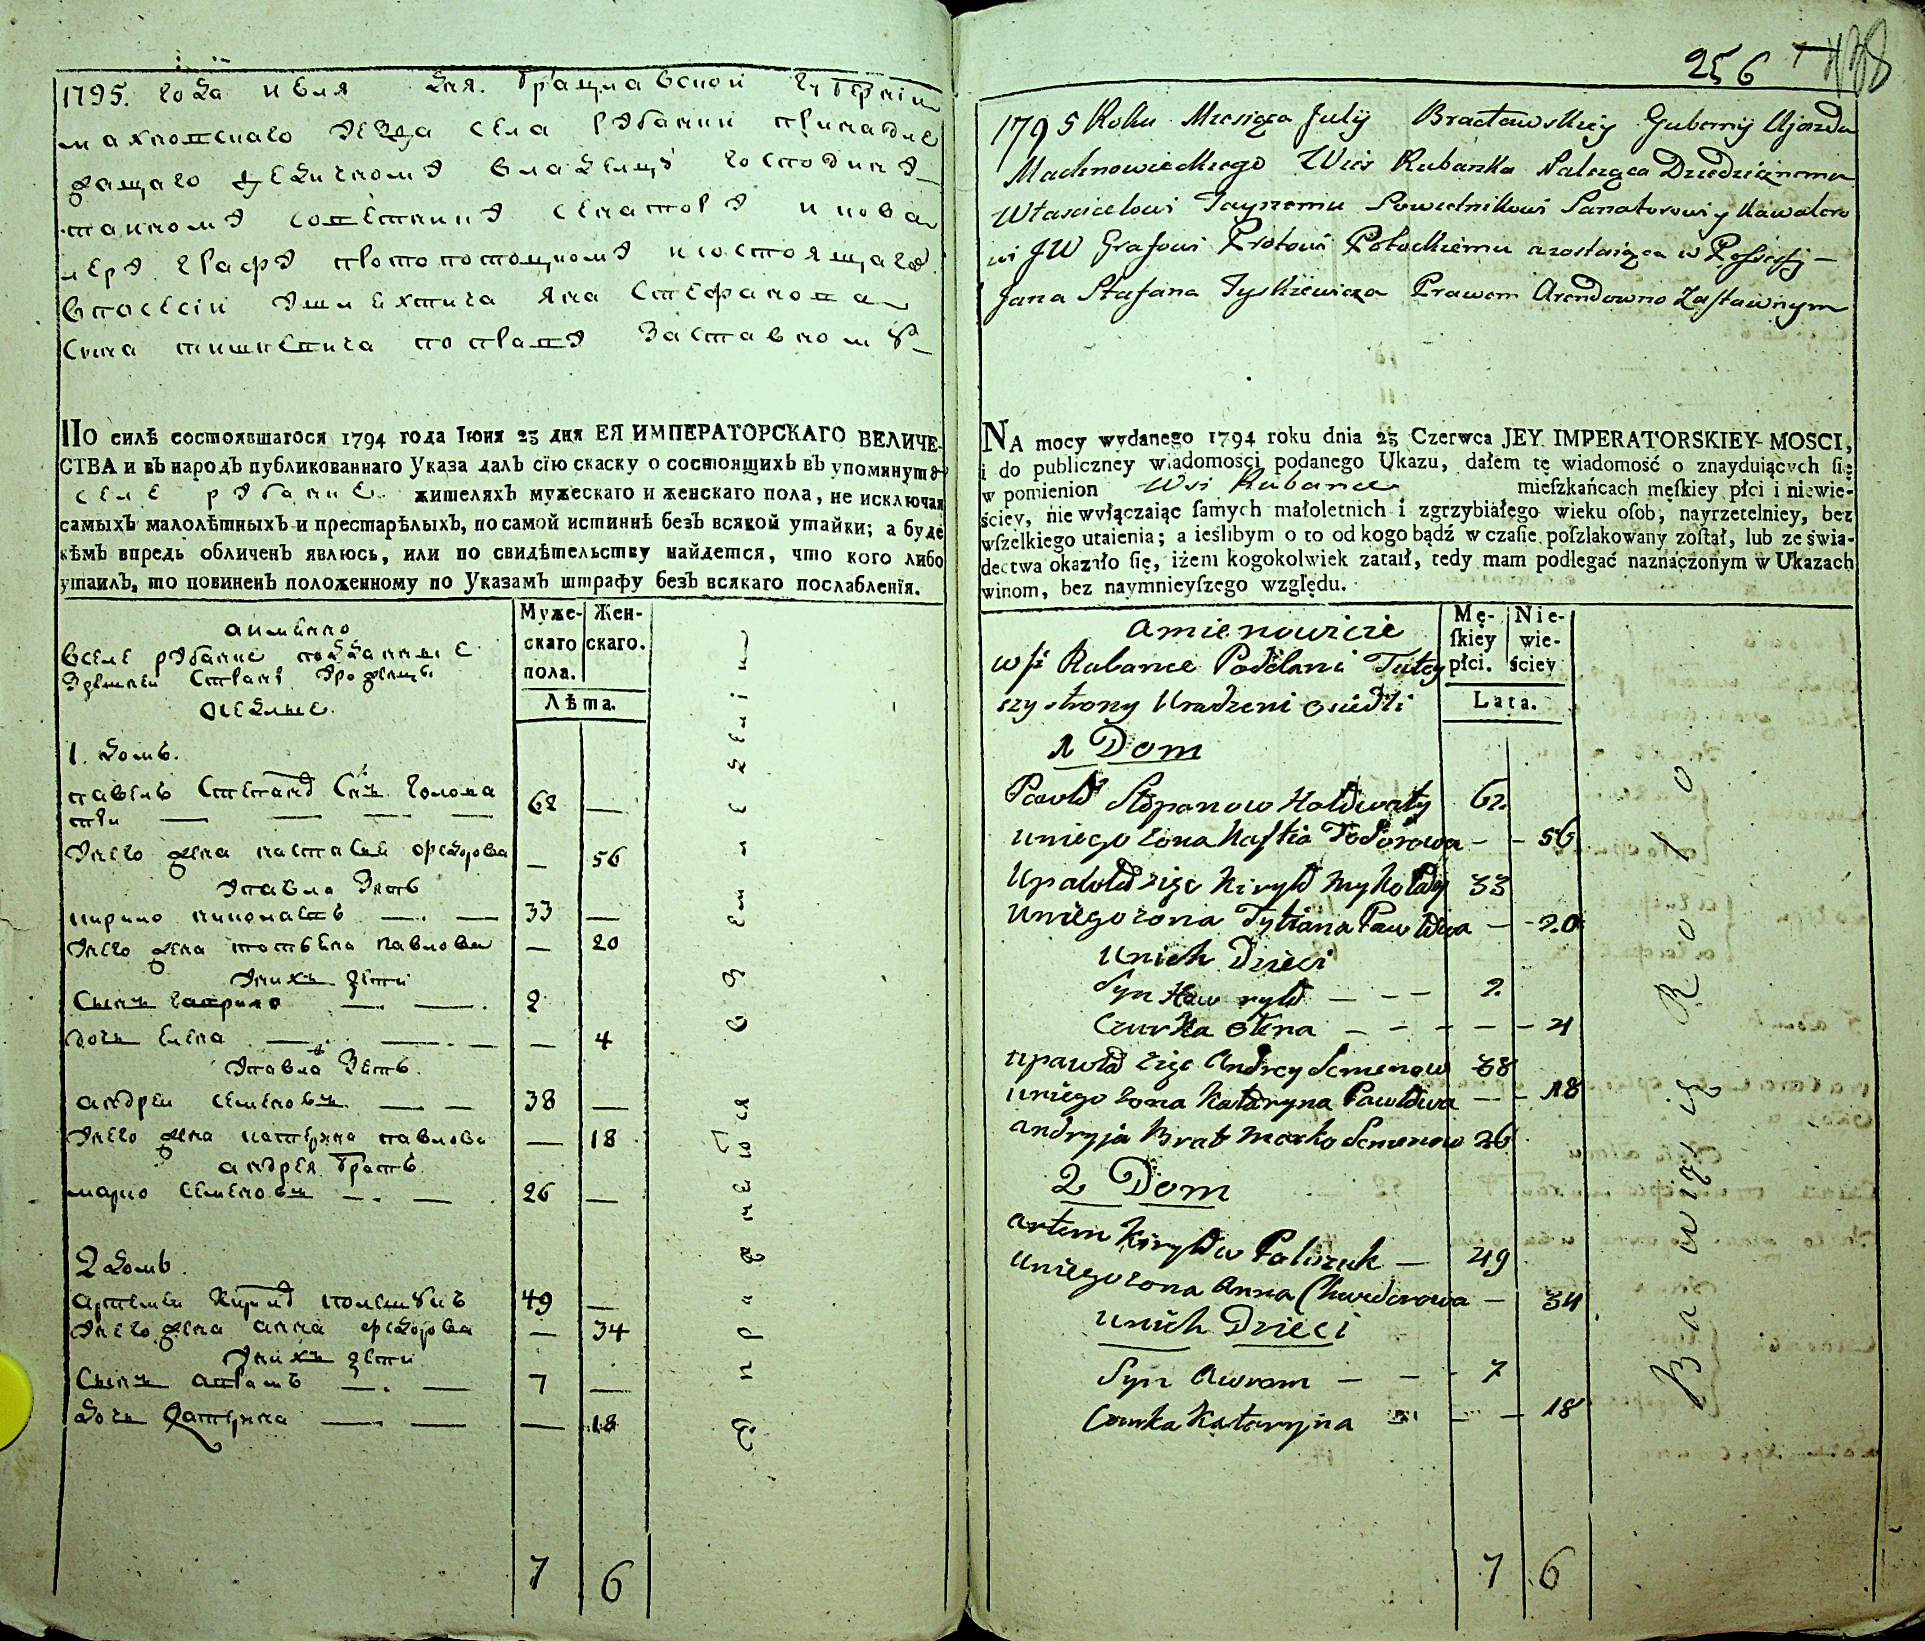 1795. года июля дня. Брацлавской губернїи
махновскаго уезда села рубанки принадле
жащаго дедичному владелцу господину
таиному советнику сенатору и кова
леру графу протопотоцкому и состоящаго
впосесїи у шляхтича яна Стефанова
Сына тишкевича по праву заставному
ПО силѣ состоявшагося 1794 года Iюня 23 дня ЕЯ ИМПЕРАТОРСКАГО ВЕЛИЧЕ-
СТВА и въ народъ публикованнаго Указа далъ сїю скаску о состоящихъ въ упомянутом
селе рубанке жителяхъ мужескаго и женскаго пола, не исключая
самыхъ малолѣтныхъ и престарѣлыхъ, по самой истиннѣ безъ всякой утайки; а буде
кѣмъ впредь обличенъ явлюсь, или по свидѣтельству найдется, что кого либо
утаилъ, то повиненъ положенному по Указамъ штрафу безъ всякаго послабленїя.
Муже-
скаго
пола.
Жен-
скаго.
Лѣта.
аимянно
вселе рубанке подданные
здешней Страны урожденцы
оседлые
1. домъ.
павелъ Степанов Сынъ голова
тый — — — —
62 —
унего жена настасья федорова
— 56
упавла зять
кирило николаевъ — —
33 —
унего жена татьяна павлова
— 20
унихъ дети
Сынъ гаврило — —
2
дочь елена — —
— 4
упавла зять.
андреи семеновъ — —
38 —
унего жена катерина павлова
— 18
андрея братъ
марко семеновъ — —
26 —
2 домъ.
артемеи кирилов полещукъ
49 —
унего жена анна федорова
— 34
унихъ дети
Сынъ аврамъ — —
7 —
дочь Катерина — —
— 18
7 6
256
438
1795 Roku Miesiąca July Bracławskiey Gubernij Ujazdu
Machnowieckiego Wieś Rubanka Należąca Dziedzicznemu
Włascicielowi Taynemu Sowietnikowi Sanatorowi y Kawalero
wi JW Grafowi Protowi Potockiemu azostaiąca w Possesij —
Jana Stefana Tyszkiewicza Prawem Arendowno Zastawnym
NA mocy wydanego 1794 roku dnia 23 Czerwca JEY IMPERATORSKIEY MOSCI,
i do publiczney wiadomości podanego Ukazu, dałem tę wiadomość o znayduiących ſię
w pomienion Wsi Rubance mieſzkańcach męſkiey płci i niewie-
ściey, nie wyłączaiąc ſamych małoletnich i zgrzybiałego wieku oſob, nayrzetelniey, bez
wſzelkiego utaienia; a ieślibym o to od kogo bądź w czaſie poſzlakowany zoſtał, lub ze świa-
dectwa okazało ſię, iżem kogokolwiek zataił, tedy mam podlegać naznaczonym w Ukazach
winom, bez naymnieyſzego względu.
Mę-
ſkiey
płci.
Nie-
wie-
ściey
Lata.
amienowicie
wsi Rubance Poddani Tutey
szy strony Uradzeni osiedli
1 Dom
Pawło Stepanow Hołowaty 62
uniego żona Nastia Todorowa — — 56
upawła zięć Kiryło Mykołay 33
uniego żona Tytiana Pawłowa — — 20
unich Dzieci
Syn Hawryło — — — 2
Curka Olena — — — — — 4
upawła zięć Andrey Semenow 38
uniego żona Kataryna Pawłowa — — 18
andryja Brat Marko Semenow 26
2 Dom
artem Kiryłow Polszuk — 49
uniego żona Anna Chwedorowa — 34
unich Dzieci
Syn Awram — — — 7
Curka Kataryna — — — 18
7 6